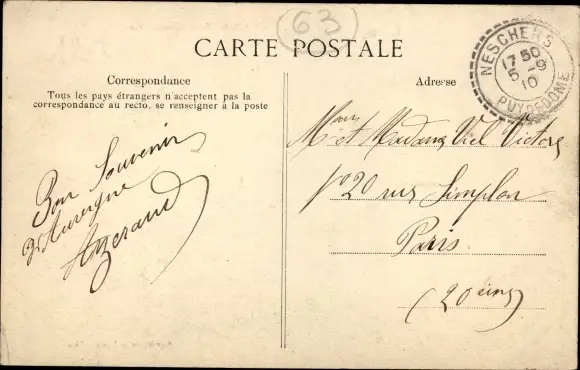 63
CARTE POSTALE
Correspondance
Tous les pays étrangers n'acceptent pas la
correspondance au recto, se renseigner à la poste
Adresse
NESCHERS
17 50
5 -9
10
PUY-DE-DOME
Bon Souvenir
d'Auvergne
et Madame Viel Victor
20 rue Simplon
Paris